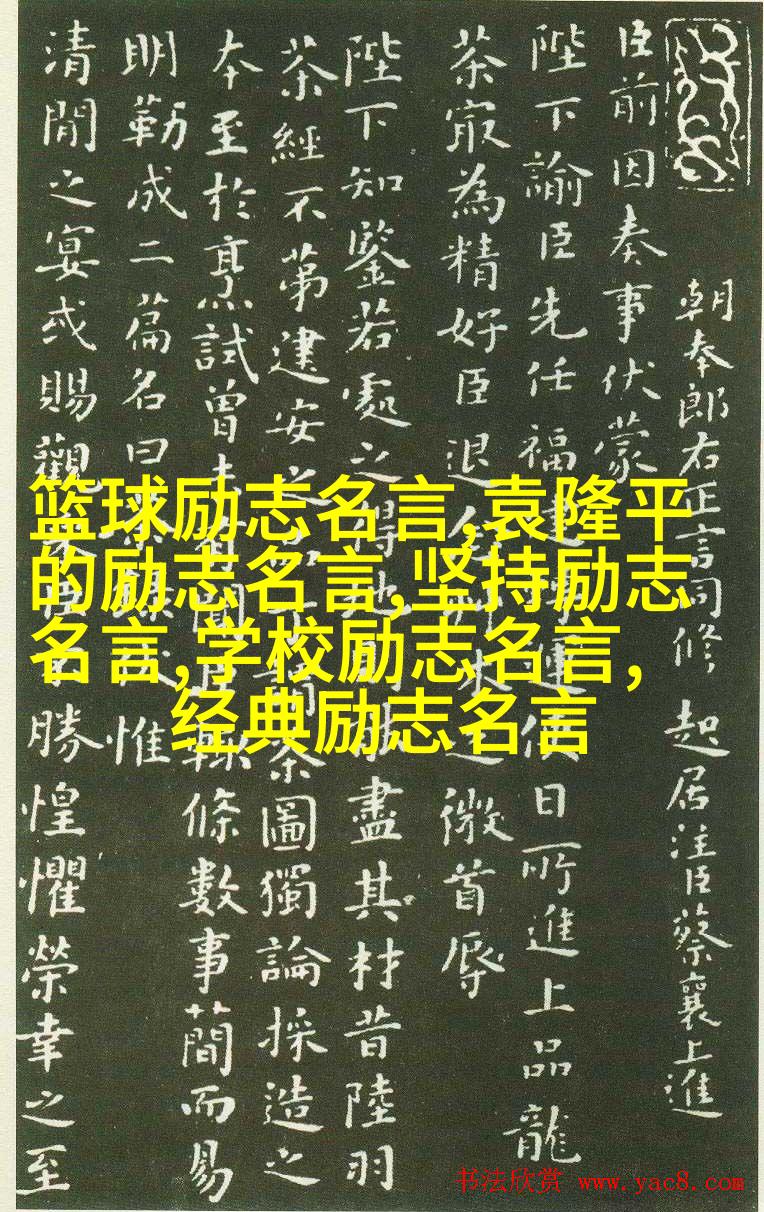 朝奉郎右正言同修起居注臣蔡襄上進
臣前因奏事伏蒙
陛下諭臣先任福建運使日所進上品龍
茶寂為精好臣退念之微首辱
陛下知鑒若處之得地盡其材昔陸羽
茶經不第建安之茶圖獨論採造之
本至於烹試曾未有聞臣輒條數事簡而易
明勒成二篇名曰惟
清閒之宴或賜觀勝惶懼榮幸之至
篮球励志名言,袁隆平
的励志名言,坚持励志
名言,学校励志名言,
经典励志名言
书法欣赏 www.yac8.com